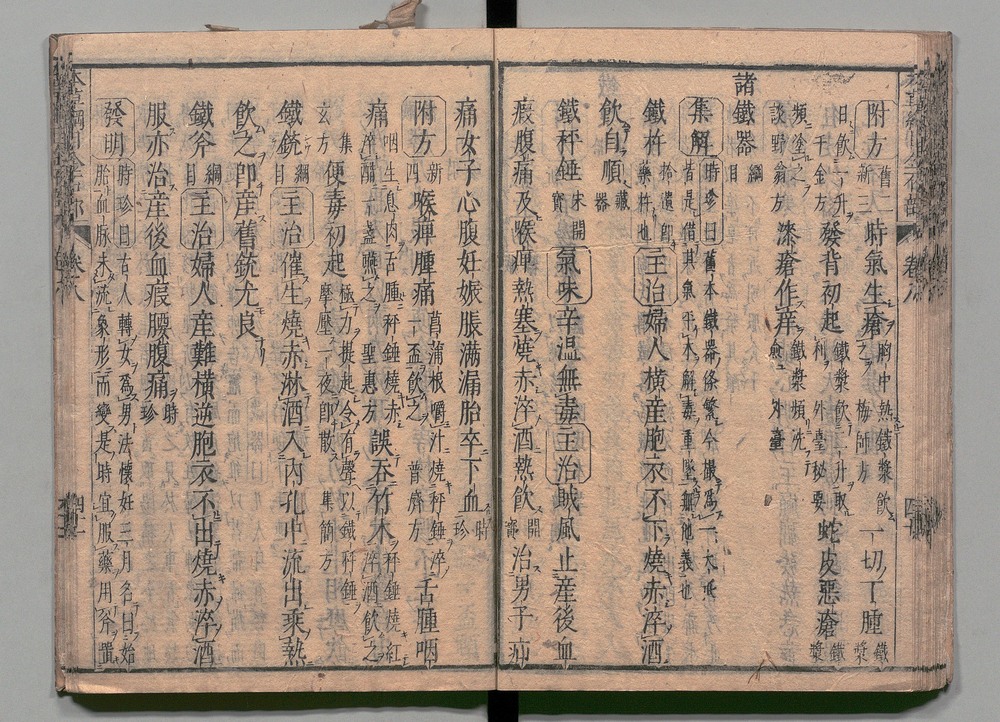 附方 舊一新三 時氣生瘡 胸中熱鐵漿飲之 梅師方 一切丁腫 鐵漿
日飲一升 千金方 發背初起 鐵漿飲二升取利 外臺秘要 蛇皮惡瘡 鐵漿
頻塗之 談野翁方 漆瘡作痒 鐵漿頻洗愈 外臺
諸鐵器 綱目
集解 時珍曰舊本鐵器條繁今撮爲一大抵
皆是借其氣平木解毒重墜無他義也
鐵杵 拾遺即藥杵也 主治婦人橫産胞衣不下燒赤淬酒
飲自順 藏器
鐵秤錘 宋開寶 氣味辛温無毒主治賊風止産後血
瘕腹痛及喉痺熱塞燒赤淬酒熱飲 開寶 治男子疝
痛女子心腹妊娠脹滿漏胎卒下血 時珍
附方 新四 喉痺腫痛 菖蒲根嚼汁燒秤錘淬一盃飲之 普濟方 舌腫咽
痛 咽生息肉舌腫秤錘燒赤淬醋一盞嚥之 聖惠方 誤吞竹木 秤錘燒紅淬酒飲之
集玄方 便毒初起 極力提起令有聲以鐵秤錘摩壓一夜即散 集簡方
鐵銃 綱目 主治催生燒赤淋酒入内孔中流出乘熱
飲之即産舊銃尤良
鐵斧 綱目 主治婦人産難橫逆胞衣不出燒赤淬酒
服亦治産後血瘕腰腹痛 時珍
發明 時珍曰古人轉女爲男法懷妊三月名曰始
胎血脉未流象形而變是時宜服藥用斧置